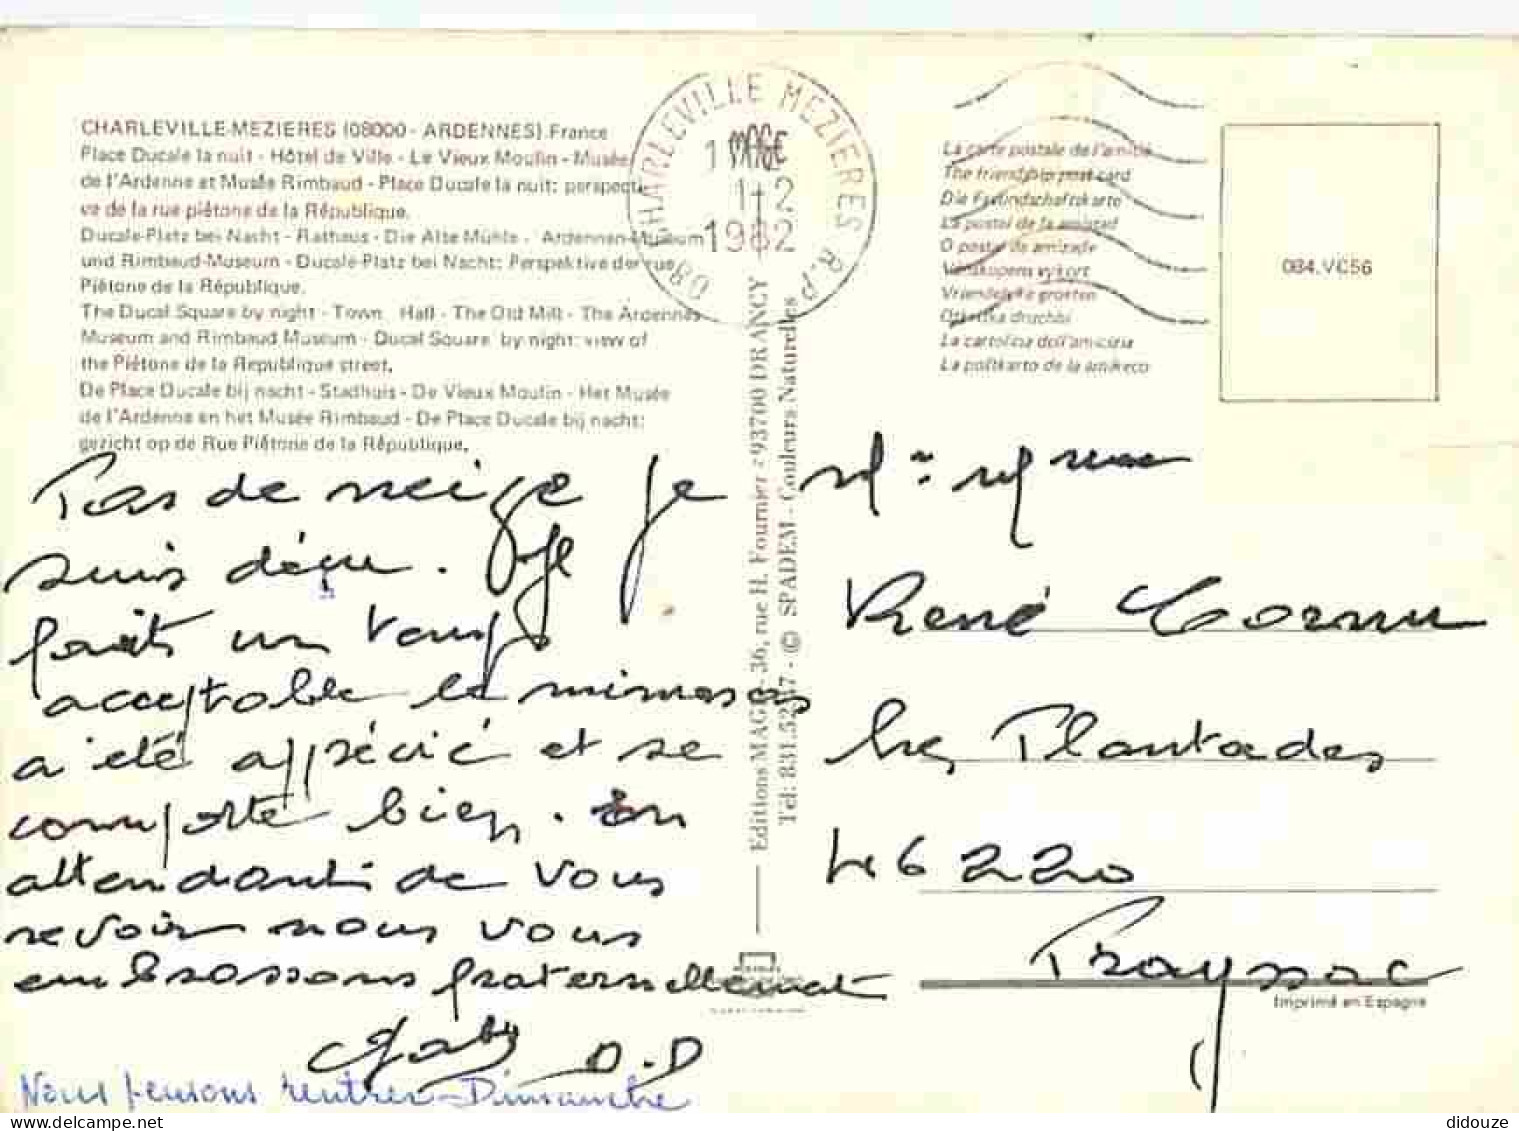 CHARLEVILLE-MEZIERES (08000 - ARDENNES) France
Place Ducale la nuit - Hôtel de Ville - Le Vieux Moulin - Musée
de l'Ardenne et Musée Rimbaud - Place Ducale la nuit: perspecti-
ve de la rue piétone de la République.
Ducale-Platz bei Nacht - Rathaus - Die Alte Mühle - Ardennen-Museum
und Rimbaud-Museum - Ducale-Platz bei Nacht: Perspektive der rue
Piétone de la République.
The Ducal Square by night - Town Hall - The Old Mill - The Ardennes
Museum and Rimbaud Museum - Ducal Square by night: view of
the Piétone de la Republique street.
De Place Ducale bij nacht - Stadhuis - De Vieux Moulin - Het Musée
de l'Ardenne en het Musée Rimbaud - De Place Ducale bij nacht:
gezicht op de Rue Piétone de la République.
08 CHARLEVILLE MEZIERES R.P.
1-2
1982
La carte postale de l'amitié
The friendship post card
Die Freundschaftskarte
La postal de la amistad
O postal da amizade
Vänskapens vykort
Vriendelijke groeten
La cartolina dell'amicizia
La poŝtkarto de la amikeco
084.VC56
Editions MAGE - 36, rue H. Fournier - 93700 DRANCY
Tél: 831.52.37 - © SPADEM - Couleurs Naturelles
Pas de neige je
suis déçu. Il
fait un temps
acceptable le mimosas
a été apprécié et se
comporte bien. En
attendant de vous
revoir nous vous
embrassons fraternellement
Gaby D.D
Nous pensons rentrer Dimanche
Mr Mme
René Cornu
Les Plantades
46220
Prayssac
Imprimé en Espagne
didouze